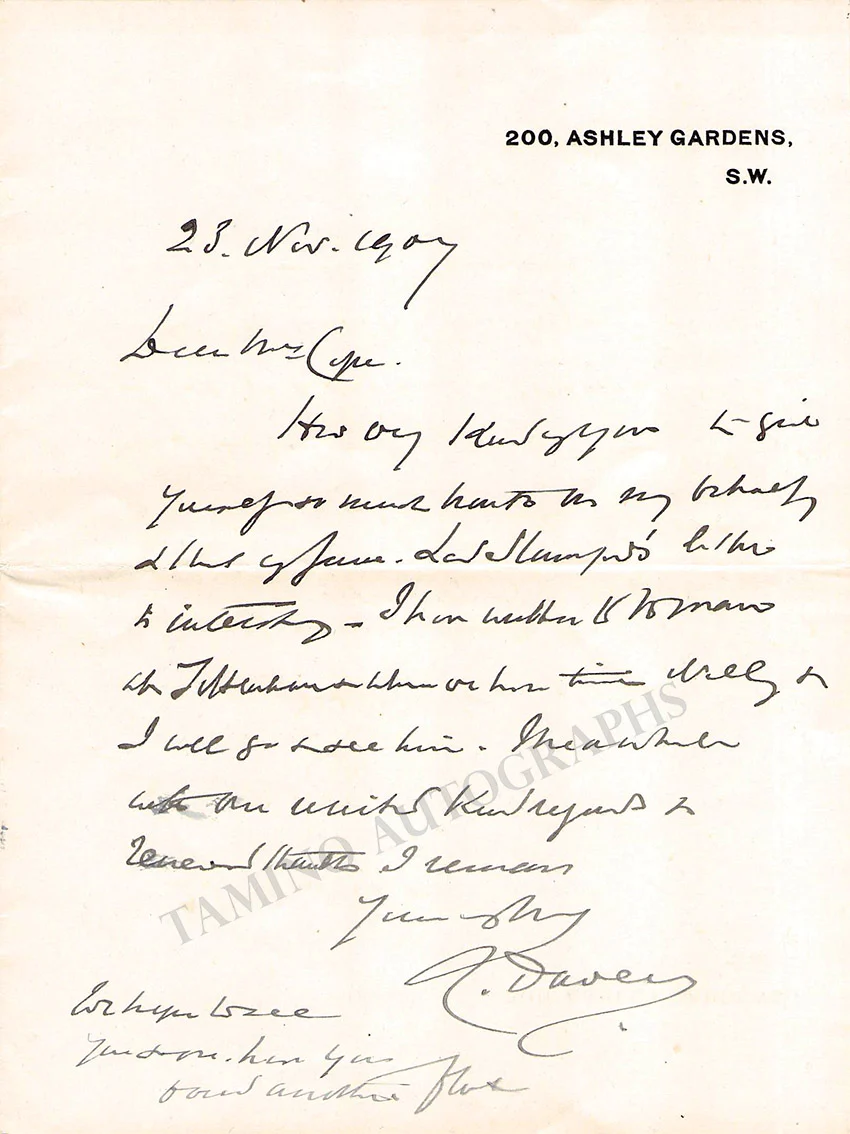 200, ASHLEY GARDENS,
S.W.
23. Nov. 1907
Dear Mrs Cope.
How very kind of you to give
yourself so much trouble on my behalf
& that of Lord 's letter
is interesting - I have written to
at Tottenham & when we have time Nelly &
I will go & see him. Meanwhile
with our united kind regards &
renewed thanks I remain
Yours
R. Davey
We hope to see
you soon. have you
found another flat
TAMINO AUTOGRAPHS